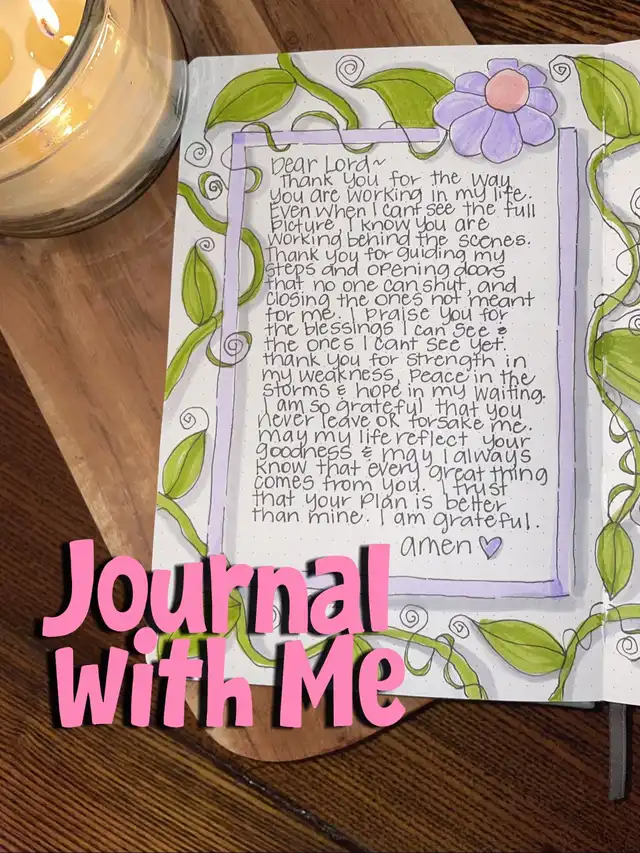 Dear Lord~
Thank you for the way
you are working in my life.
Even when I cant see the full
picture I know you are
working behind the scenes.
Thank you for guiding my
steps and opening doors
that no one can shut, and
closing the ones not meant
for me. I praise you for
the blessings I can see &
the ones I cant see yet.
thank you for strength in
my weakness, peace in the
storms & hope in my waiting.
I am so grateful that you
never leave or forsake me.
may my life reflect your
goodness & may I always
know that every great thing
comes from you. I trust
that your plan is better
than mine. I am grateful.
amen
Journal
with Me